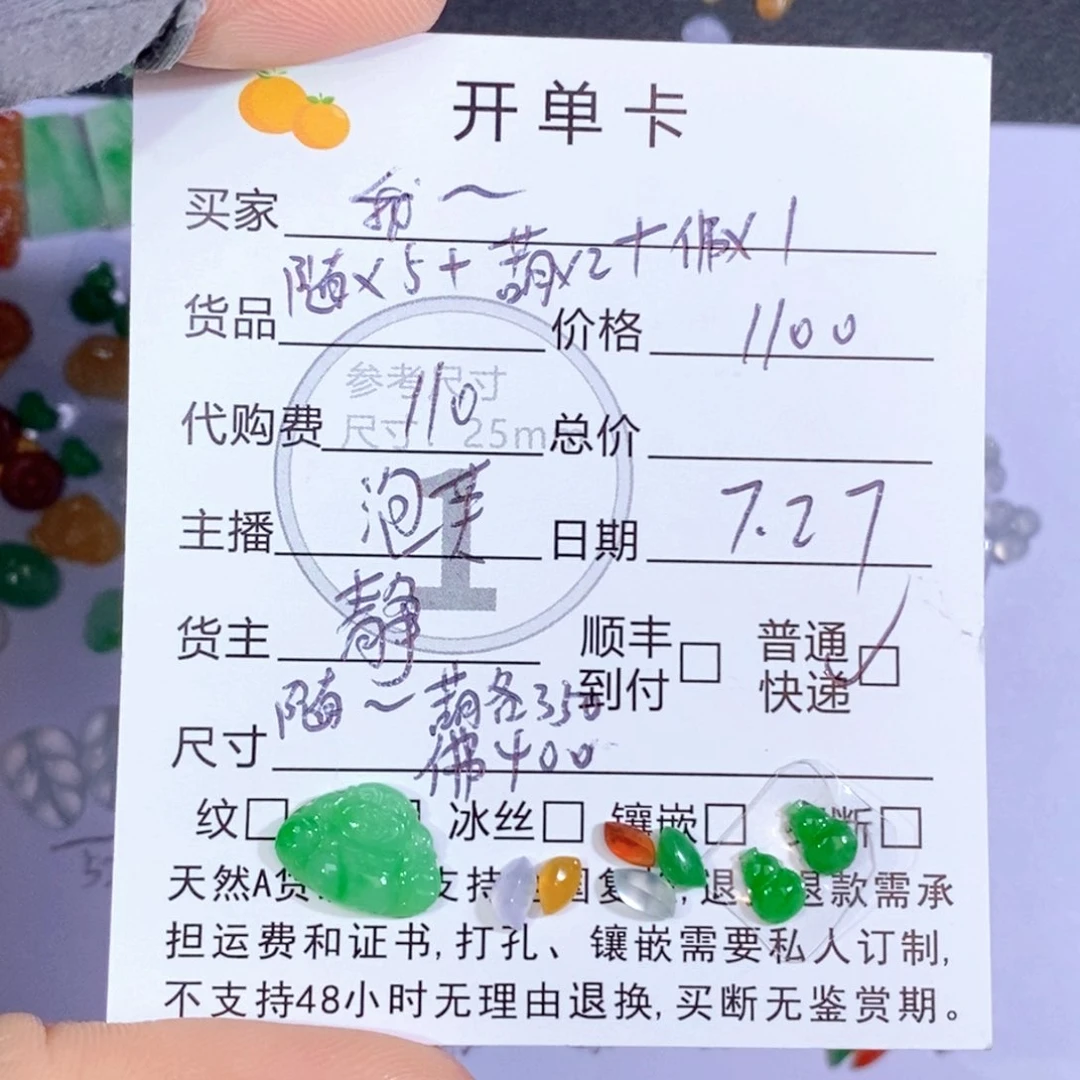 开单卡
买家 ~
随x5+葫x2+佛x1
货品 价格 1100
参考尺寸
尺寸：25m
代购费 110 总价
1
主播 泡芙 日期 7.27
货主 静 顺丰到付 普通快递
随~葫各350
尺寸 佛400
纹 冰丝 镶嵌 断
天然A货 支持 国复 ,退 退款需承
担运费和证书,打孔、镶嵌需要私人订制,
不支持48小时无理由退换,买断无鉴赏期。